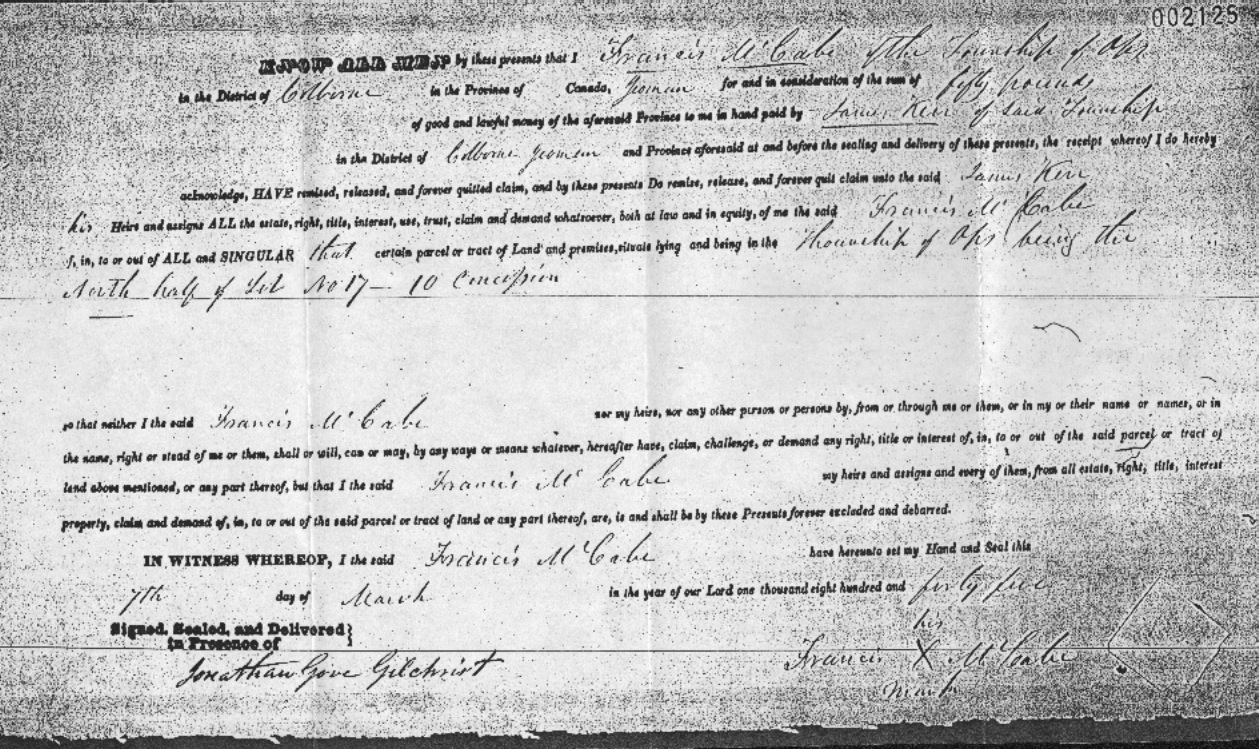 002125
KNOW ALL MEN by these presents that I Francis McCabe of the Township of Ops
in the District of Colborne in the Province of Canada, Yeoman for and in consideration of the sum of fifty pounds
of good and lawful money of the aforesaid Province to me in hand paid by James Kerr of said Township
in the District of Colborne Yeoman and Province aforesaid at and before the sealing and delivery of these presents, the receipt whereof I do hereby
acknowledge, HAVE remised, released, and forever quitted claim, and by these presents Do remise, release, and forever quit claim unto the said James Kerr
his Heirs and assigns ALL the estate, right, title, interest, use, trust, claim and demand whatsoever, both at law and in equity, of me the said Francis McCabe
f, in, to or out of ALL and SINGULAR that certain parcel or tract of Land and premises, situate lying and being in the Thownship of Ops being the
North half of Lot No 17 — 10 Concession
so that neither I the said Francis McCabe nor my heirs, nor any other person or persons by, from or through me or them, or in my or their name or names, or in
the name, right or stead of me or them, shall or will, can or may, by any ways or means whatever, hereafter have, claim, challenge, or demand any right, title or interest of, in, to or out of the said parcel or tract of
land above mentioned, or any part thereof, but that I the said Francis McCabe my heirs and assigns and every of them, from all estate, right, title, interest
property, claim and demand of, in, to or out of the said parcel or tract of land or any part thereof, are, is and shall be by these Presents forever excluded and debarred.
IN WITNESS WHEREOF, I the said Francis McCabe have hereunto set my Hand and Seal this
7th day of March in the year of our Lord one thousand eight hundred and forty five
Signed, Sealed, and Delivered }
in Presence of
his
Jonathan Gove Gilchrist Francis X McCabe
mark